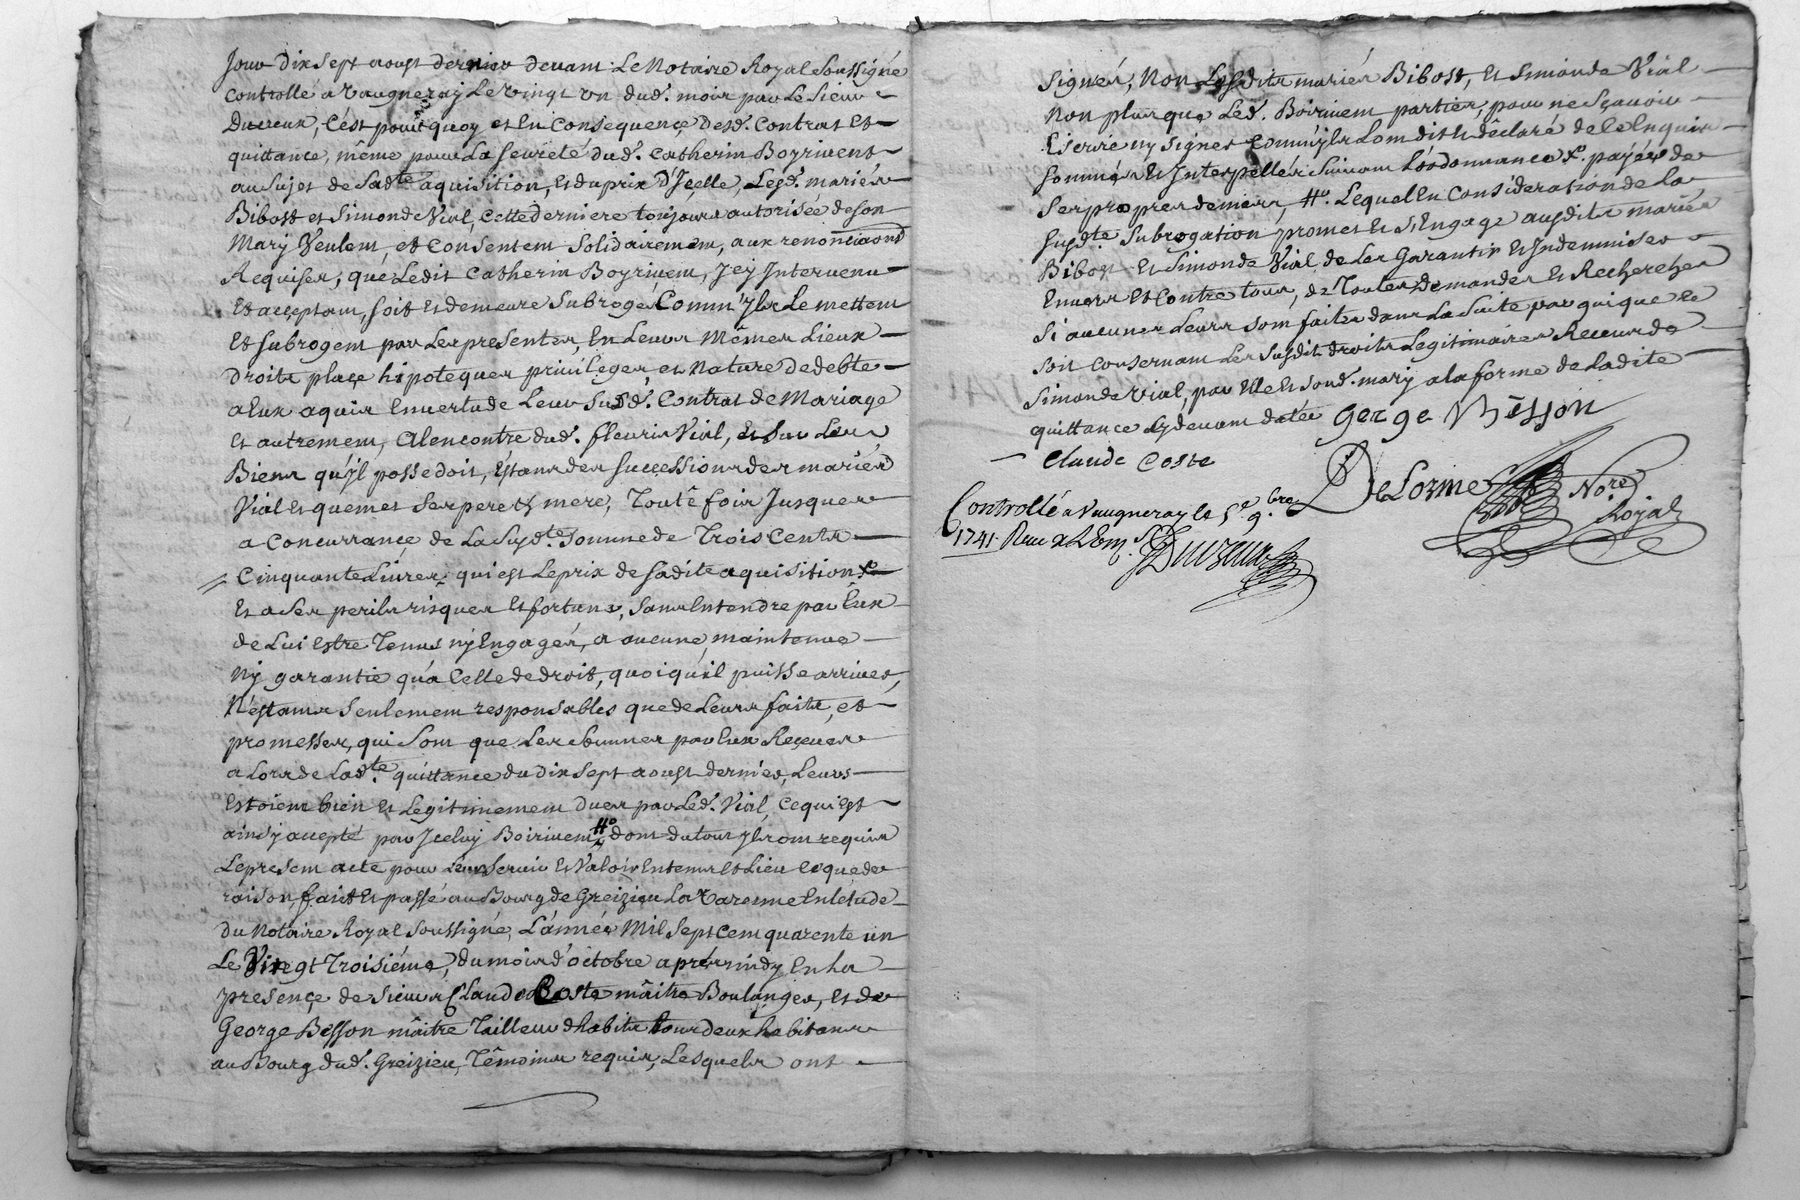 Jour Dix sept aoust dernier devant Le Notaire Royal soussigné
Controllé a Vaugneray Le vingt un dud. mois par Le Sieur
Duvreux, C'est pourquoy et En Consequençe desd. Contrat et
quittance, même pour La seureté dud. Catherin Boyrivent
au sujet de Sadte aquisition, et du prix d'Jçelle, Lesd. mariés
Bibost et Simonde Vial, cette derniere toujours autorisée de son
Mary Veulent, et Consentent Solidairement, aux renonciaons
Requises, que Ledit Catherin Boyrivent, Jcy Jntervenu
Et acçeptant, soit et demeure Subrogé, Comm'Jls Le mettent
Et subrogent par Les presentes, En Leurs Mêmes Lieux
droits plaçe hipoteques privileges, et Nature de debte
a Eux aquis En vertu de Leur Susd. Contrat de Mariage
et autrement, A l'encontre dud. fleuris Vial, et sur Les
Biens qu'Jl possedoit, Estans des suççessions des mariés
Vial et quemet ses pere et mere, Toutefois Jusques
a Concurrançe de La susdte somme de Trois Cents
Cinquante Livres, qui est Le prix de sadite aquisition
Et a Ses perils risques et fortune, sans entendre par Eux
de Lui estre Tenus ny Engagés, a aucune maintenue
Ny garantie qu'a Celle de droit, quoiqu'il puisse arriver,
N'estans seulement responsables que de Leurs faits, et
promesses, qui Sont que Les sommes par Eux Reçues
a Lors de Ladte quittance du Dix Sept aoust dernier, Leurs
Estoient bien et Legitimement Dues par Led. Vial, Ce qui est
ainsy acçepté par Jceluy Boirivent #o dont du tout Jls ont requis
Le present acte pour Leur servir et Valoir En tems et Lieu Ce que de
raison, fait et passé au Bourg de Greizieu La Varenne En l'étude
du Notaire Royal Soussigné, L'année Mil Sept Cent quarente un
Le Vingt Troisiéme, du mois d'octobre aprés midy En La
presençe de Sieurs Claude Coste maître Boulanger, et de
George Besson maître Tailleur d'habits tous deux habitans
au Bourg dud. Greizieu, Témoins requis, Lesquels ont
signés, Non Lesdits mariés Bibost, et Simonde Vial
Non plus que Led. Boirivent parties, pour ne sçavoir
Escrire ny signer Comm'jls L'ont dit et déclaré de Ce Enquis
sommés Et Jnterpellés Suivant L'ordonnance Xo. payées de
ses propres deniers, #o. Lequel En Consideration de La
susdte Subrogation promet et s'Engage ausdits mariés
Bibost Et Simonde Vial de Les Garantir et Jndemniser
Envers Et Contre tous, de Toutes Demandes Et Recherches
si aucunes Leurs sont faites dans La suite par qui que Ce
soit Conservant Les susdits droits Legitimaires Receus de
Simonde Vial, par Elle et sond. mary a la forme de Ladite
quittance Cy devant datée Gerge Besson
Claude Coste
DeLorme Nore Royal
Controllé a Vaugneray le 5e 9.bre
1741. Reçu
Duvreux